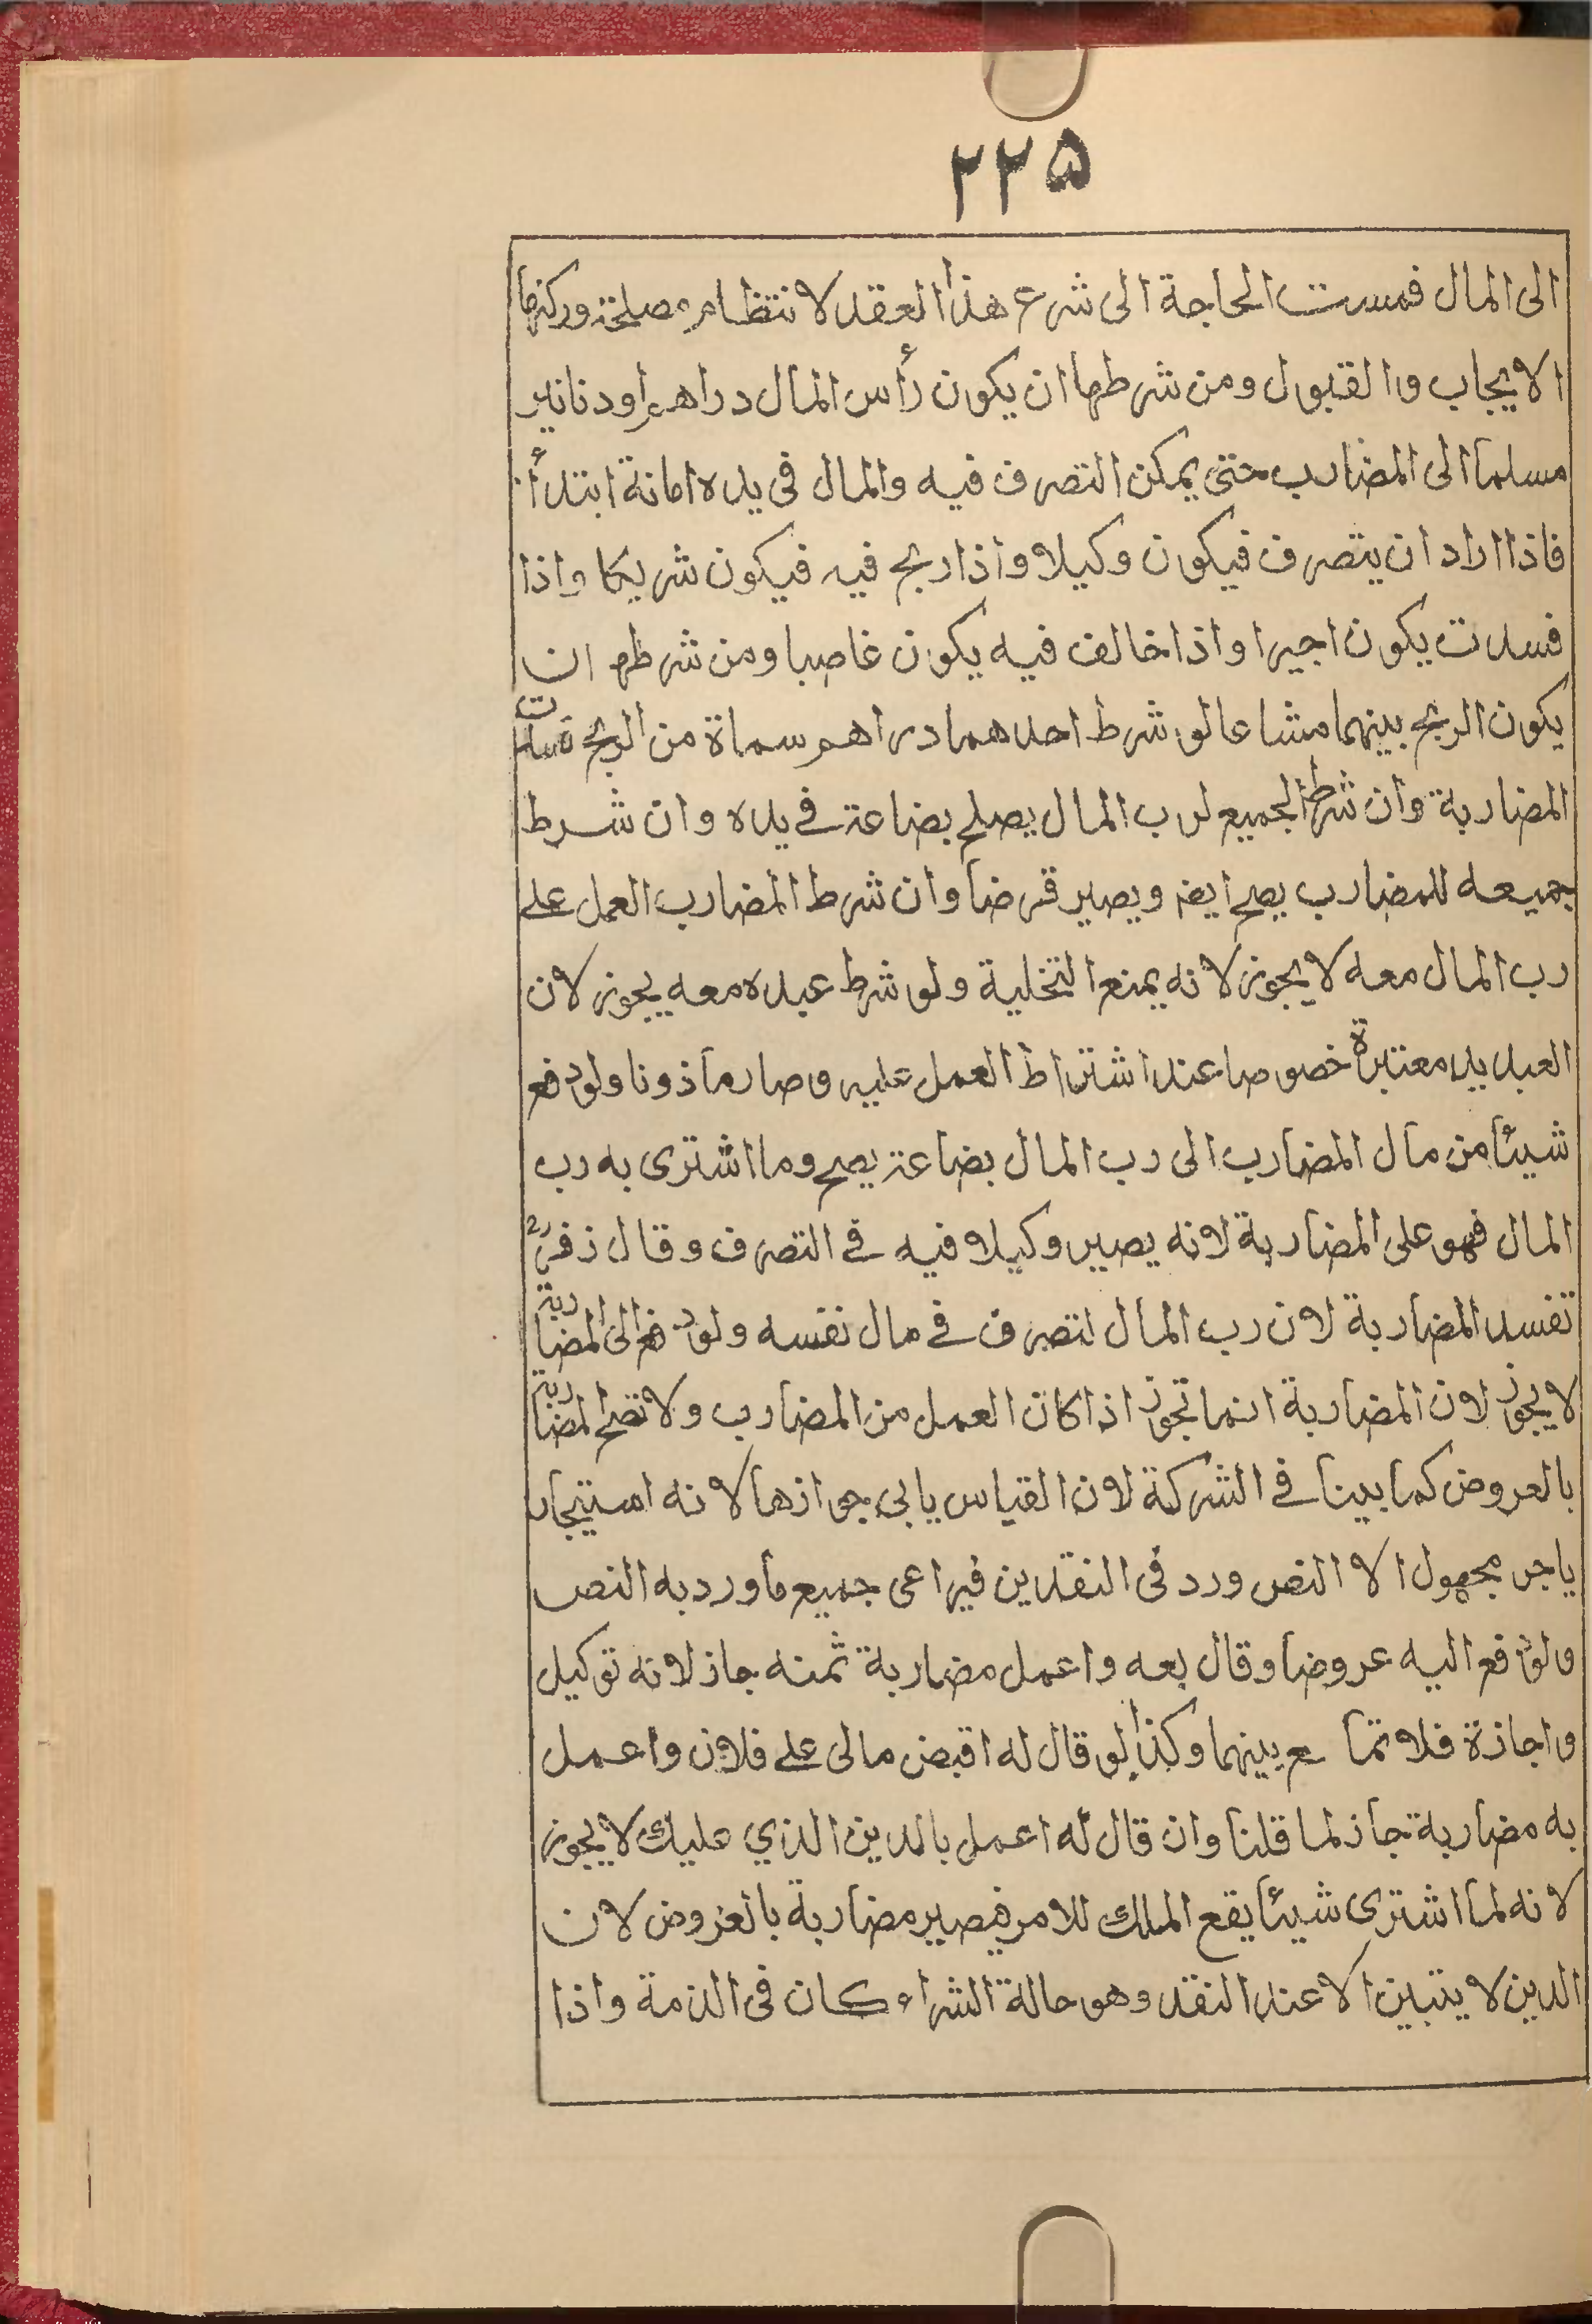 ٢٢٥
الى المال فمست الحاجة الى شرع هذا العقد لانتظام مصلحته وركنها
الايجاب والقبول ومن شرطها ان يكون رأس المال دراهم او دنانير
مسلما الى المضارب حتى يمكن التصرف فيه والمال فى يده امانة ابتدأ
فاذا اراد ان يتصرف فيكون وكيلا واذا ربح فيه فيكون شريكا واذا
فسدت يكون اجيرا واذا خالف فيه يكون غاصبا ومن شرطها ان
يكون الربح بينهما مشاعا لو شرط احدهما دراهم سماة من الربح فسدت
المضاربة وان شرط الجميع لرب المال يصلح بضاعة فى يده وان شرط
جميعه للمضارب يصح ايضا ويصير قرضا وان شرط المضارب العمل على
رب المال معه لا يجوز لانه يمنع التخلية ولو شرط عبده معه يجوز لان
العبد يد معتبرة خصوصا عند اشتراط العمل عليه وصار مأذونا ولو دفع
شيئا من مال المضارب الى رب المال بضاعة يصح وما اشترى به رب
المال فهو على المضاربة لانه يصير وكيلا فيه فى التصرف وقال زفرؒ
تفسد المضاربة لان رب المال لتصرف فى مال نفسه ولو دفع الى المضاربة
لا يجوز لان المضاربة انما تجوز اذا كان العمل من المضارب ولا تصح المضاربة
بالعروض كما بينا فى الشركة لان القياس يابى جوازها لانه استيجار
ياجر مجهول الا النص ورد فى النقدين فيراعى جميع ما ورد به النص
ولو دفع اليه عروضا وقال بعه واعمل مضاربة ثمنه جاز لانه توكيل
واجازة فلا تما نع بينهما وكذا لو قال له اقبض مالى على فلان واعمل
به مضاربة جاز لما قلنا وان قال له اعمل بالدين الذي عليك لا يجوز
لانه لما اشترى شيئا يقع الملك للامر فيصير مضاربة بالعروض لان
الدين لا يتبين الا عند النقد وهو حالة الشراء كان فى الذمة واذا